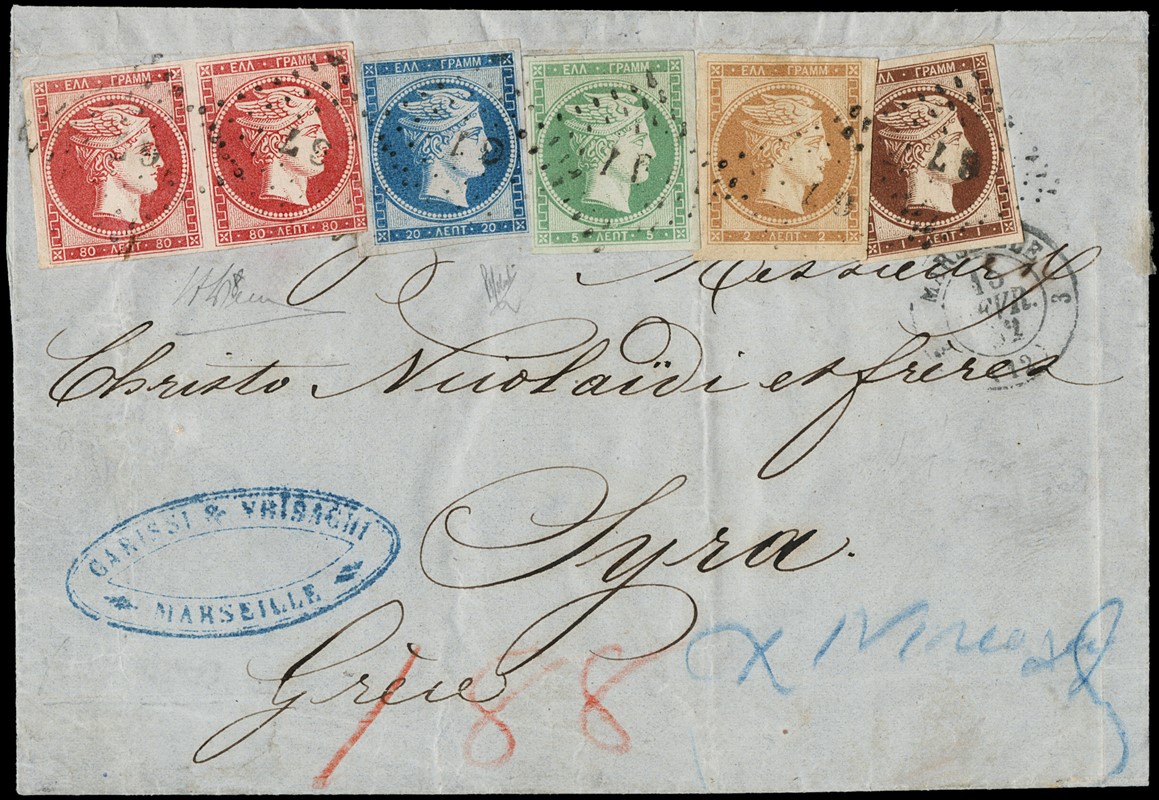 ΕΛΛ ΓΡΑΜΜ
80 ΛΕΠΤ 80
ΕΛΛ ΓΡΑΜΜ
80 ΛΕΠΤ 80
67
ΕΛΛ ΓΡΑΜΜ
20 ΛΕΠΤ 20
67
ΕΛΛ ΓΡΑΜΜ
5 ΛΕΠΤ 5
ΕΛΛ ΓΡΑΜΜ
2 ΛΕΠΤ 2
67
ΕΛΛ ΓΡΑΜΜ
1 ΛΕΠΤ
67
Messieurs
MARSEILLE
3
Christo Nicolaïdi et freres
Syra.
CARISSI & VRISAGHI
MARSEILLE
Grèce
188